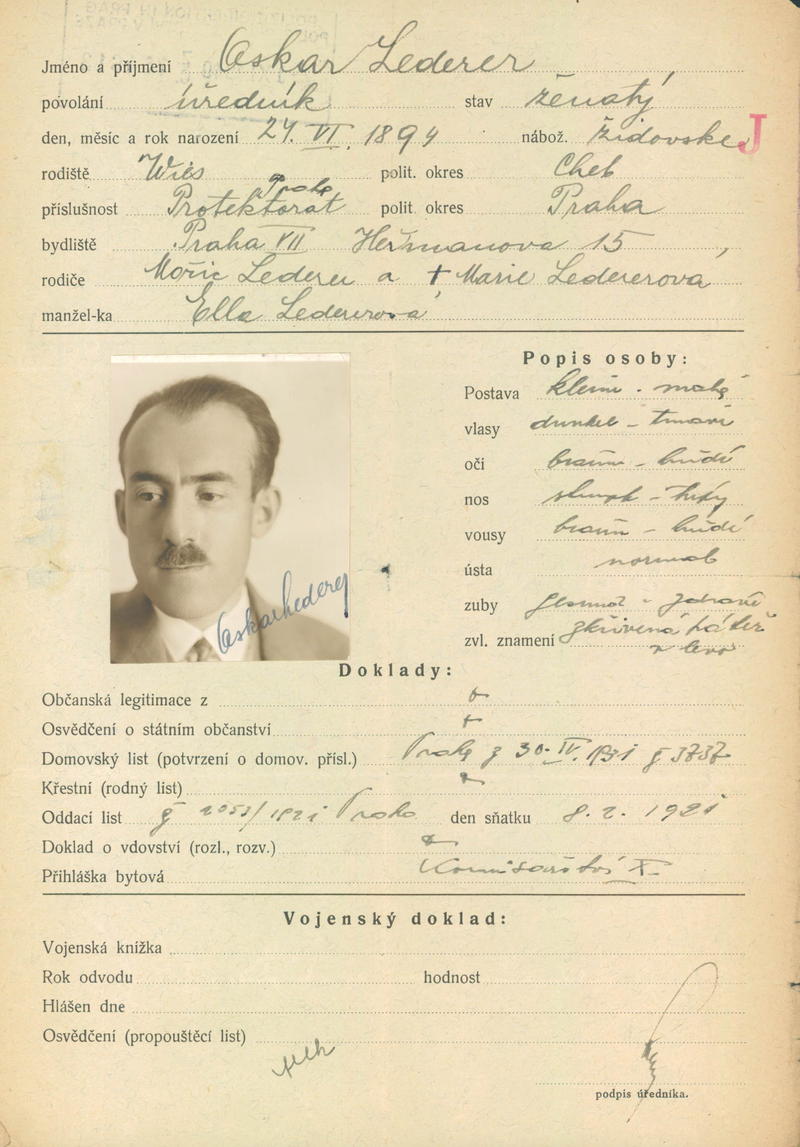 Jméno a příjmení Oskar Lederer
povolání úředník stav ženatý
den, měsíc a rok narození 24. VI. 1894 nábož. židovské J
rodiště Wies polit. okres Cheb
Praha
příslušnost Protektorát polit okres Praha
bydliště Praha VII Heřmanova 15
rodiče Mořic Lederer a † Marie Ledererova
manžel-ka Ella Ledererová
Popis osoby:
Postava klein - malá
vlasy dunkel - tmavé
oči braun - hnědé
nos
vousy braun - hnědé
ústa normal
zuby
zvl. znamení páteř
Oskar Lederer
Doklady:
Občanská legitimace z
Osvědčení o státním občanství
Domovský list (potvrzení o domov. přísl.) 30. IV. 1931
Křestní (rodný list)
Oddací list Praha den sňatku 8. 2. 1921
Doklad o vdovství (rozl., rozv.)
Přihláška bytová
Vojenský doklad:
Vojenská knížka
Rok odvodu hodnost
Hlášen dne
Osvědčení (propouštěcí list)
podpis úředníka.